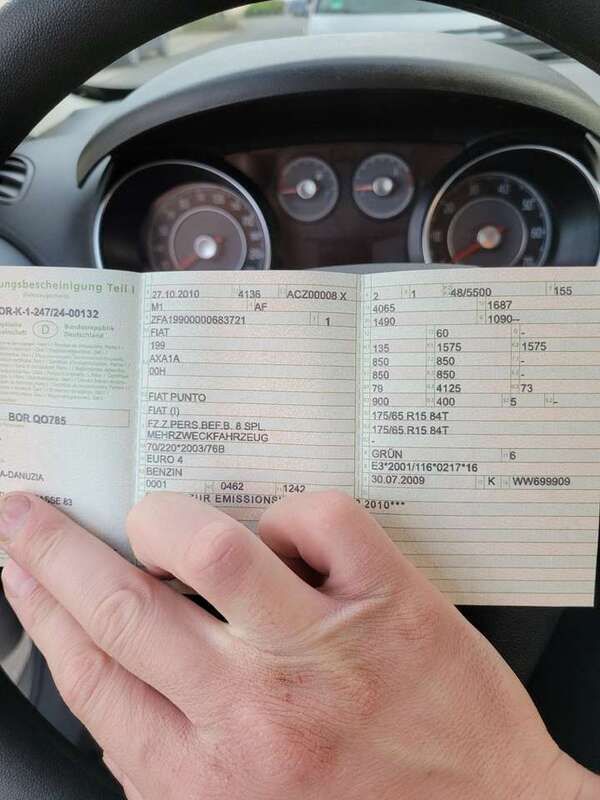 ungsbescheinigung Teil I
OR-K-1-247/24-00132
D
Bundesrepublik
Deutschland
BOR QO785
A-DANUZIA
SSE 83
27.10.2010 4136 ACZ00008 X
M1 AF
ZFA19900000683721 1
FIAT
199
AXA1A
00H
FIAT PUNTO
FIAT (I)
FZ.Z.PERS.BEF.B. 8 SPL
MEHRZWECKFAHRZEUG
70/220*2003/76B
EURO 4
BENZIN
0001 0462 1242
ZUR EMISSIONS
2 1 48/5500 155
4065 1687
1490 1090--
60 -
135 1575 1575
850 850 -
850 850 -
79 4125 73
900 400 5 -
175/65 R15 84T
175/65 R15 84T
-
GRÜN 6
E3*2001/116*0217*16
30.07.2009 K WW699909
2010***